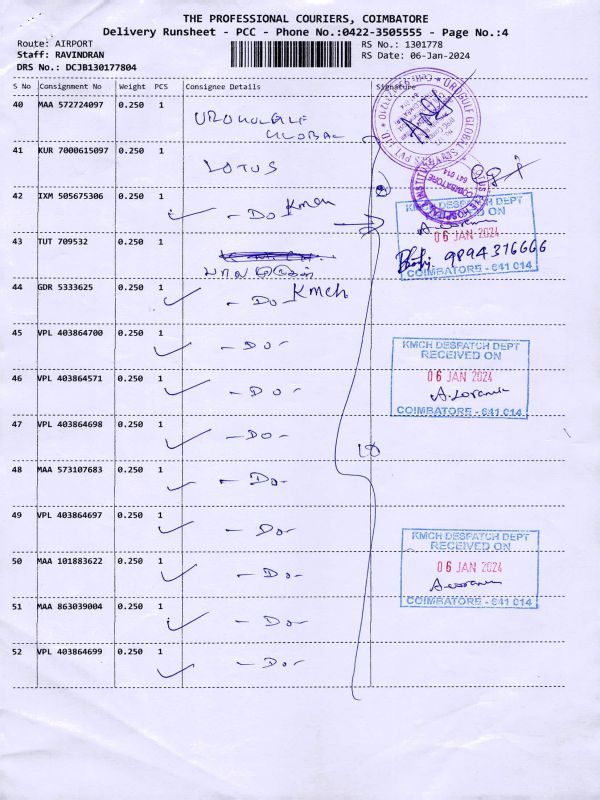 THE PROFESSIONAL COURIERS, COIMBATORE
Delivery Runsheet - PCC - Phone No.:0422-3505555 - Page No.:4
Route: AIRPORT
RS No.: 1301778
Staff: RAVINDRAN
RS Date: 06-Jan-2024
DRS No.: DCJB130177804
S No Consignment No Weight PCS Consignee Details Signature
40 MAA 572724097 0.250 1
GLOBAL
41 KUR 7000615097 0.250 1 LOTUS
42 IXM 505675306 0.250 1 - Do Kmch
KMCH DESPATCH DEPT
RECEIVED ON
06 JAN 2024
9894376666
COIMBATORE - 641 014
43 TUT 709532 0.250 1
44 GDR 5333625 0.250 1 - Do Kmch
45 VPL 403864700 0.250 1 - Do -
KMCH DESPATCH DEPT
RECEIVED ON
06 JAN 2024
COIMBATORE - 641 014
46 VPL 403864571 0.250 1 - Do -
47 VPL 403864698 0.250 1 - Do -
48 MAA 573107683 0.250 1 - Do -
49 VPL 403864697 0.250 1 - Do -
50 MAA 101883622 0.250 1 - Do -
KMCH DESPATCH DEPT
RECEIVED ON
06 JAN 2024
COIMBATORE - 641 014
51 MAA 863039004 0.250 1 - Do -
52 VPL 403864699 0.250 1 - Do -